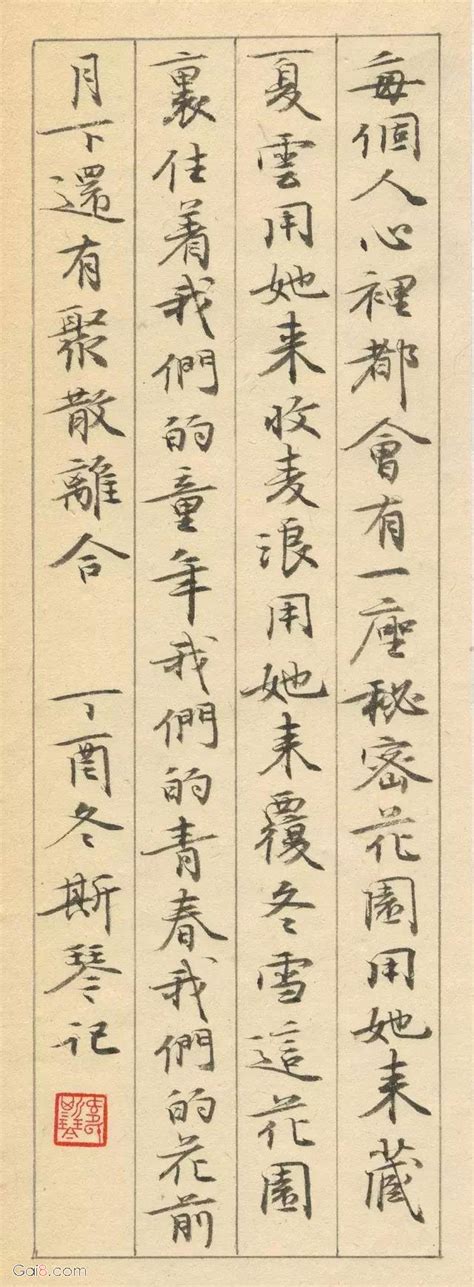 每個人心裡都會有一座秘密花園用她来藏
夏雲用她来收麦浪用她来覆冬雪這花園
裏住着我們的童年我們的青春我們的花前
月下還有聚散離合 丁酉冬斯琴记
Gai8.com